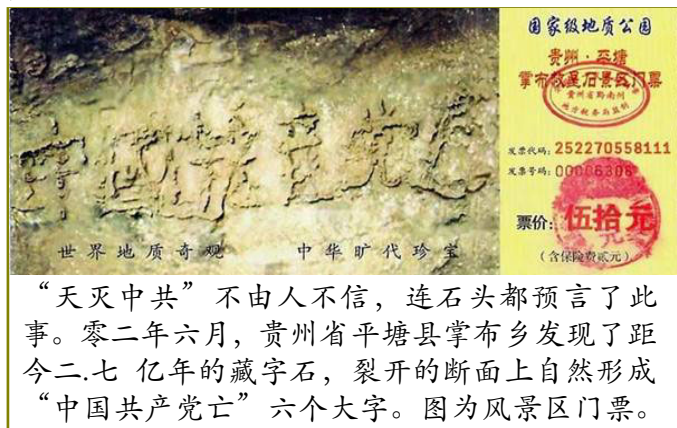 中國共产党亡
世界地质奇观 中华旷代珍宝
国家级地质公园
贵州·平塘
掌布藏字石景区门票
贵州省黔南州
地方税务局监制
发票代码:252270558111
发票号码:00006306
票价:伍拾元
(含保险费贰元)
“天灭中共”不由人不信，连石头都预言了此
事。零二年六月，贵州省平塘县掌布乡发现了距
今二.七 亿年的藏字石，裂开的断面上自然形成
“中国共产党亡”六个大字。图为风景区门票。